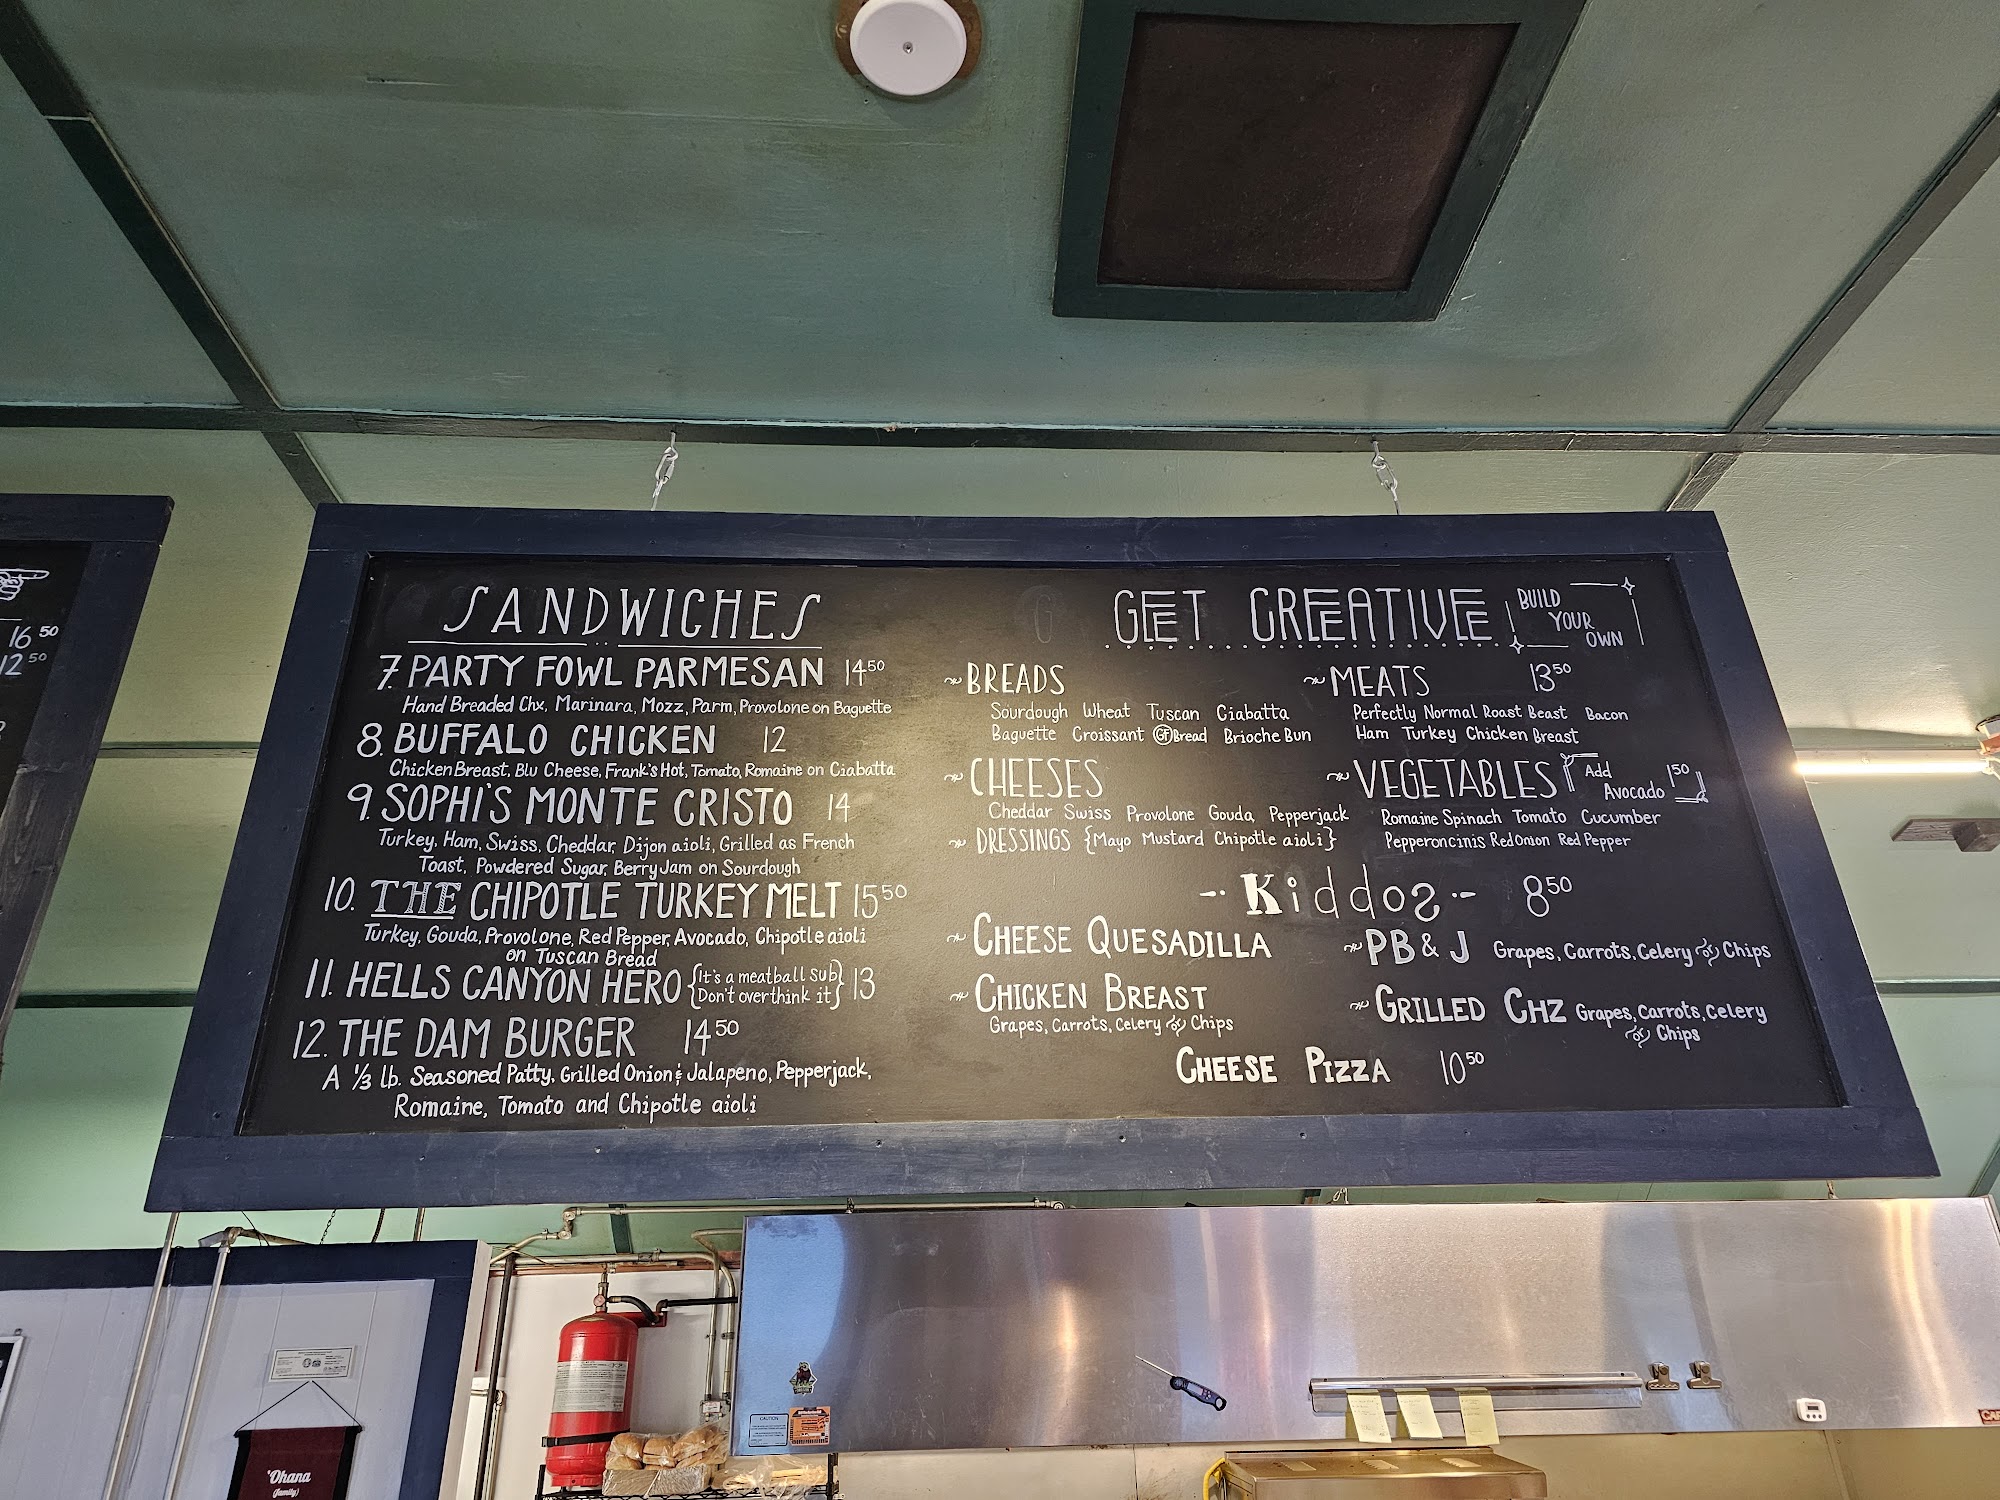 16 50
12 50
SANDWICHES
7. PARTY FOWL PARMESAN 14 50
Hand Breaded Chx, Marinara, Mozz, Parm, Provolone on Baguette
8. BUFFALO CHICKEN 12
Chicken Breast, Blu Cheese, Frank's Hot, Tomato, Romaine on Ciabatta
9. SOPHI'S MONTE CRISTO 14
Turkey, Ham, Swiss, Cheddar, Dijon aioli, Grilled as French
Toast, Powdered Sugar, Berry Jam on Sourdough
10. THE CHIPOTLE TURKEY MELT 15 50
Turkey, Gouda, Provolone, Red Pepper, Avocado, Chipotle aioli
on Tuscan Bread
11. HELLS CANYON HERO {It's a meatball sub} 13
{Don't overthink it}
12. THE DAM BURGER 14 50
A 1/3 lb. Seasoned Patty, Grilled Onion & Jalapeno, Pepperjack,
Romaine, Tomato and Chipotle aioli
GET CREATIVE
BUILD
YOUR
OWN
~BREADS
Sourdough Wheat Tuscan Ciabatta
Baguette Croissant GF Bread Brioche Bun
~MEATS 13 50
Perfectly Normal Roast Beast Bacon
Ham Turkey Chicken Breast
~CHEESES
Cheddar Swiss Provolone Gouda Pepperjack
~DRESSINGS {Mayo Mustard Chipotle aioli}
~VEGETABLES
Add
Avocado 1 50
Romaine Spinach Tomato Cucumber
Pepperoncinis Red Onion Red Pepper
Kiddos 8 50
~CHEESE QUESADILLA
~PB & J Grapes, Carrots, Celery or Chips
~CHICKEN BREAST
Grapes, Carrots, Celery or Chips
~GRILLED CHZ Grapes, Carrots, Celery
or Chips
CHEESE PIZZA 10 50
CAUTION
'Ohana
(family)